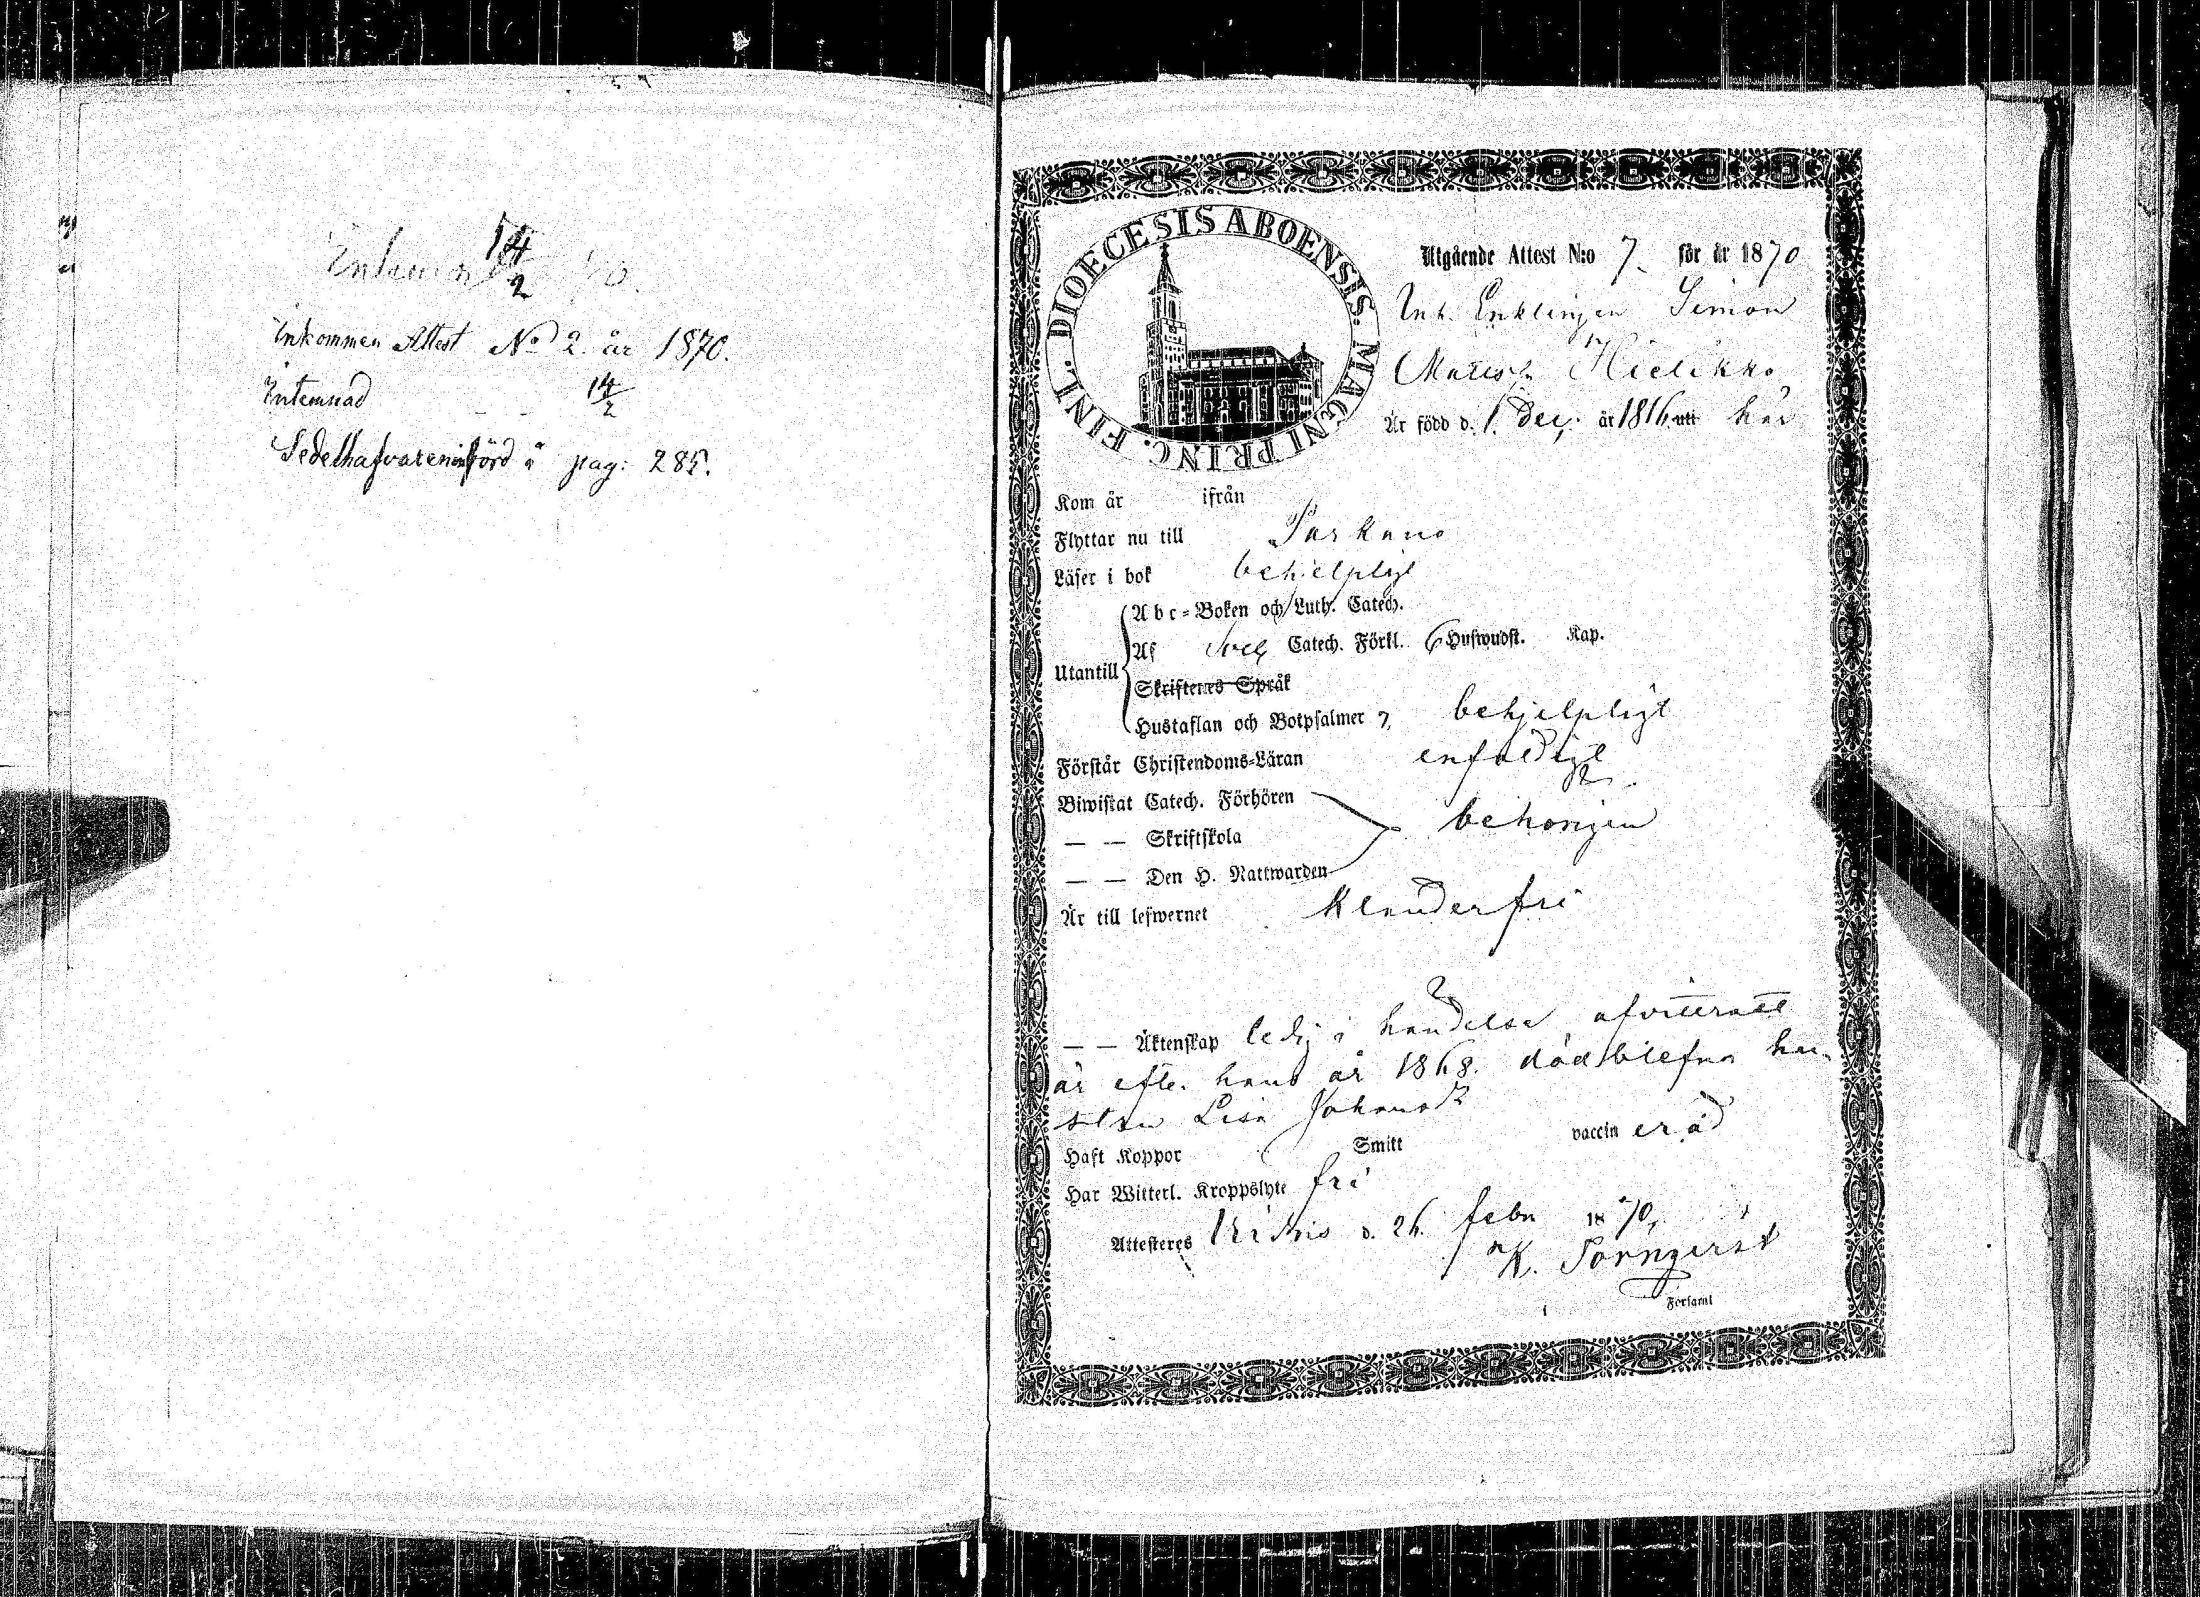 14/2
Inkommen Attest No 2. år 1870.
Inlemnad 14/2
Sedelhafvaren införd å pag: 285.
DIOECESIS ABOENSIS. MAGNI PRINC. FINL.
Utgående Attest N:o 7. för år 1870
Inh. Enklingen Simon
Matts:n Hielikko
Är född d. 1. Dec. år 1816. här
Kom år ifrån
Flyttar nu till Parkano
Läser i bok behjelpligt
Abc-Boken och Luth. Catech.
Utantill Af Sveb. Catech. Förkl. 6 Hufwudst. Kap.
Skriftenes Språk
Hustaflan och Botpsalmer 7, behjelpligt
Förstår Christendoms-Läran enfaldigt
Biwistat Catech. Förhören
— — Skriftskola behörigen
— — Den H. Nattwarden
Är till lefwernet klanderfri
— — Äktenskap ledig i händelse afvittradt
är efter hans år 1868. död blefna hu-
stru Lisa Johansd:r
Haft Koppor Smitt vaccin erad
Har Witterl. Kroppslyte fri
Attesteres d. 26. febr 1870,
K. Törnqvist
Församl